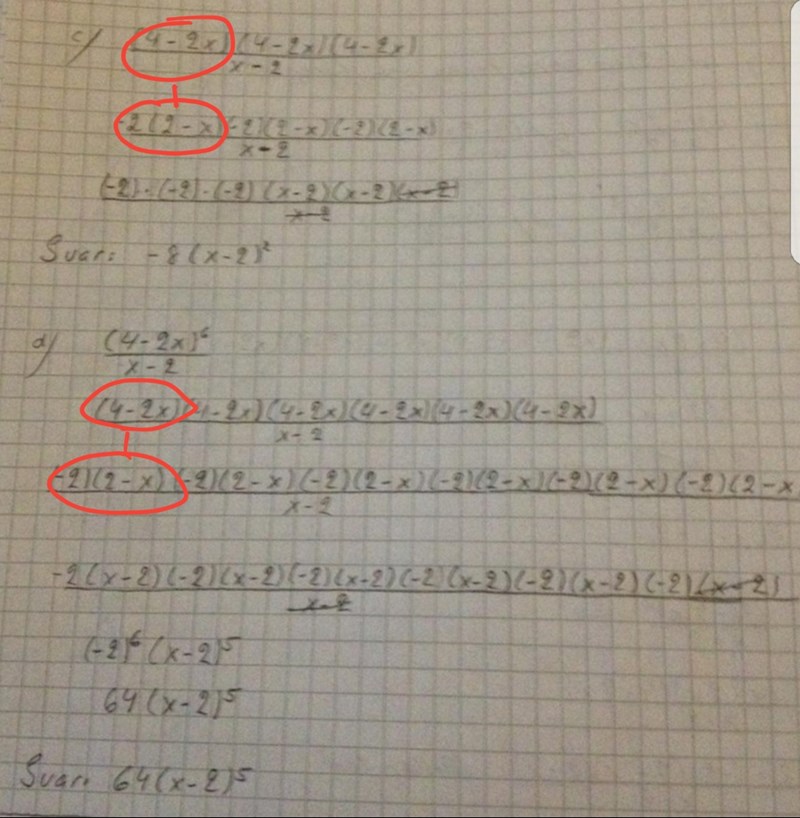 c) (4-2x)(4-2x)(4-2x)
x-2
-2(2-x)(-2)(2-x)(-2)(2-x)
x-2
(-2)·(-2)·(-2)(x-2)(x-2)(x-2)
x-2
Svar: -8(x-2)²
d) (4-2x)⁶
x-2
(4-2x)(4-2x)(4-2x)(4-2x)(4-2x)(4-2x)
x-2
(-2)(2-x)(-2)(2-x)(-2)(2-x)(-2)(2-x)(-2)(2-x)(-2)(2-x
x-2
-2(x-2)(-2)(x-2)(-2)(x-2)(-2)(x-2)(-2)(x-2)(-2)(x-2)
x-2
(-2)⁶(x-2)⁵
64(x-2)⁵
Svar: 64(x-2)⁵